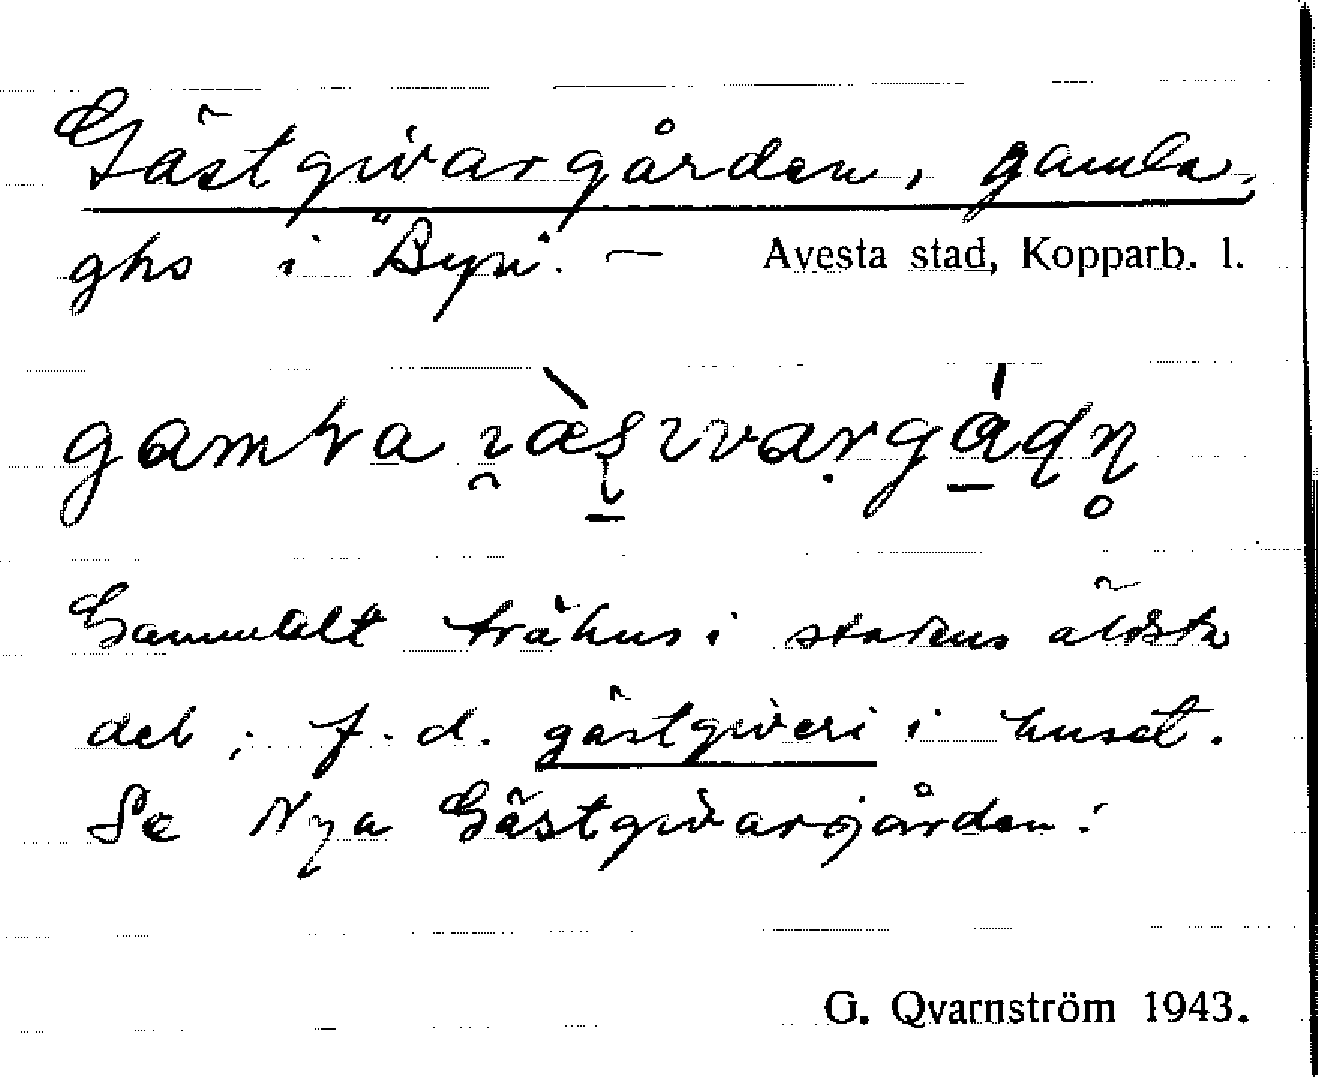 Gästgivargården, gamla,
ghs i "Byn". — Avesta stad, Kopparb. l.
Gammalt trähus i stadens äldsta
del; f.d. gästgiveri i huset.
Se Nya Gästgivargården!
G. Qvarnström 1943.